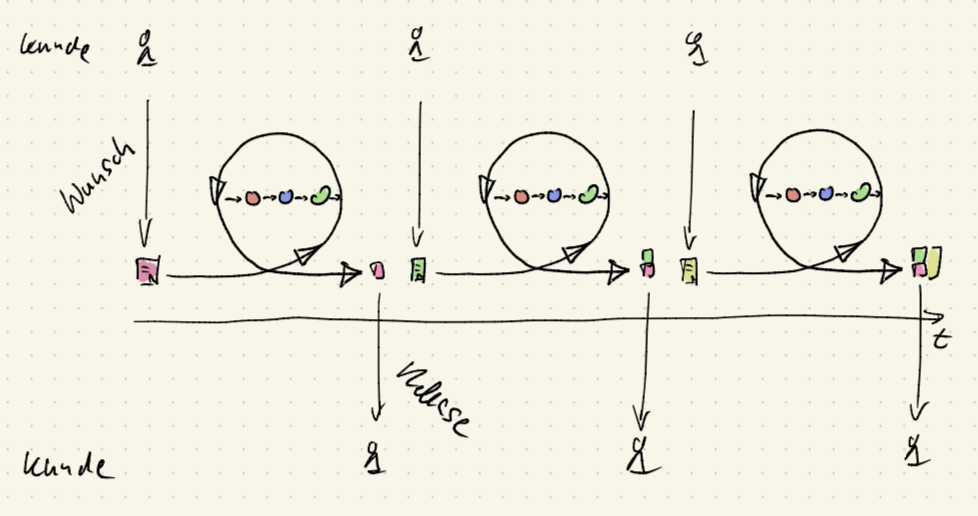 Kunde
Wunsch
t
Release
Kunde